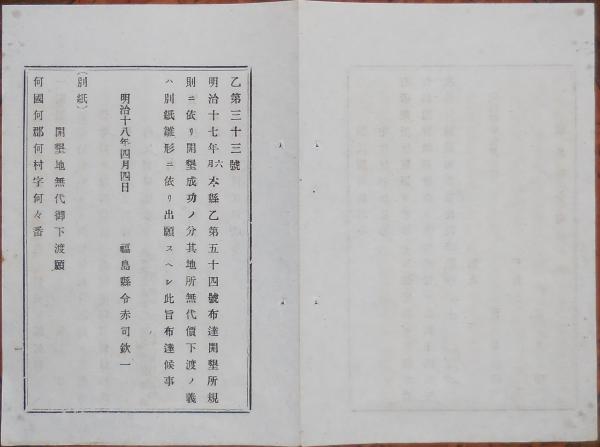 乙第三十三號
明治十七年六月本縣乙第五十四號布達開墾所規
則ニ依リ開墾成功ノ分其地所無代價下渡ノ義
ハ別紙雛形ニ依リ出願スヘシ此旨布達候事
明治十八年四月四日 福島縣令赤司欽一
（別紙）
開墾地無代御下渡願
何國何郡何村字何々番